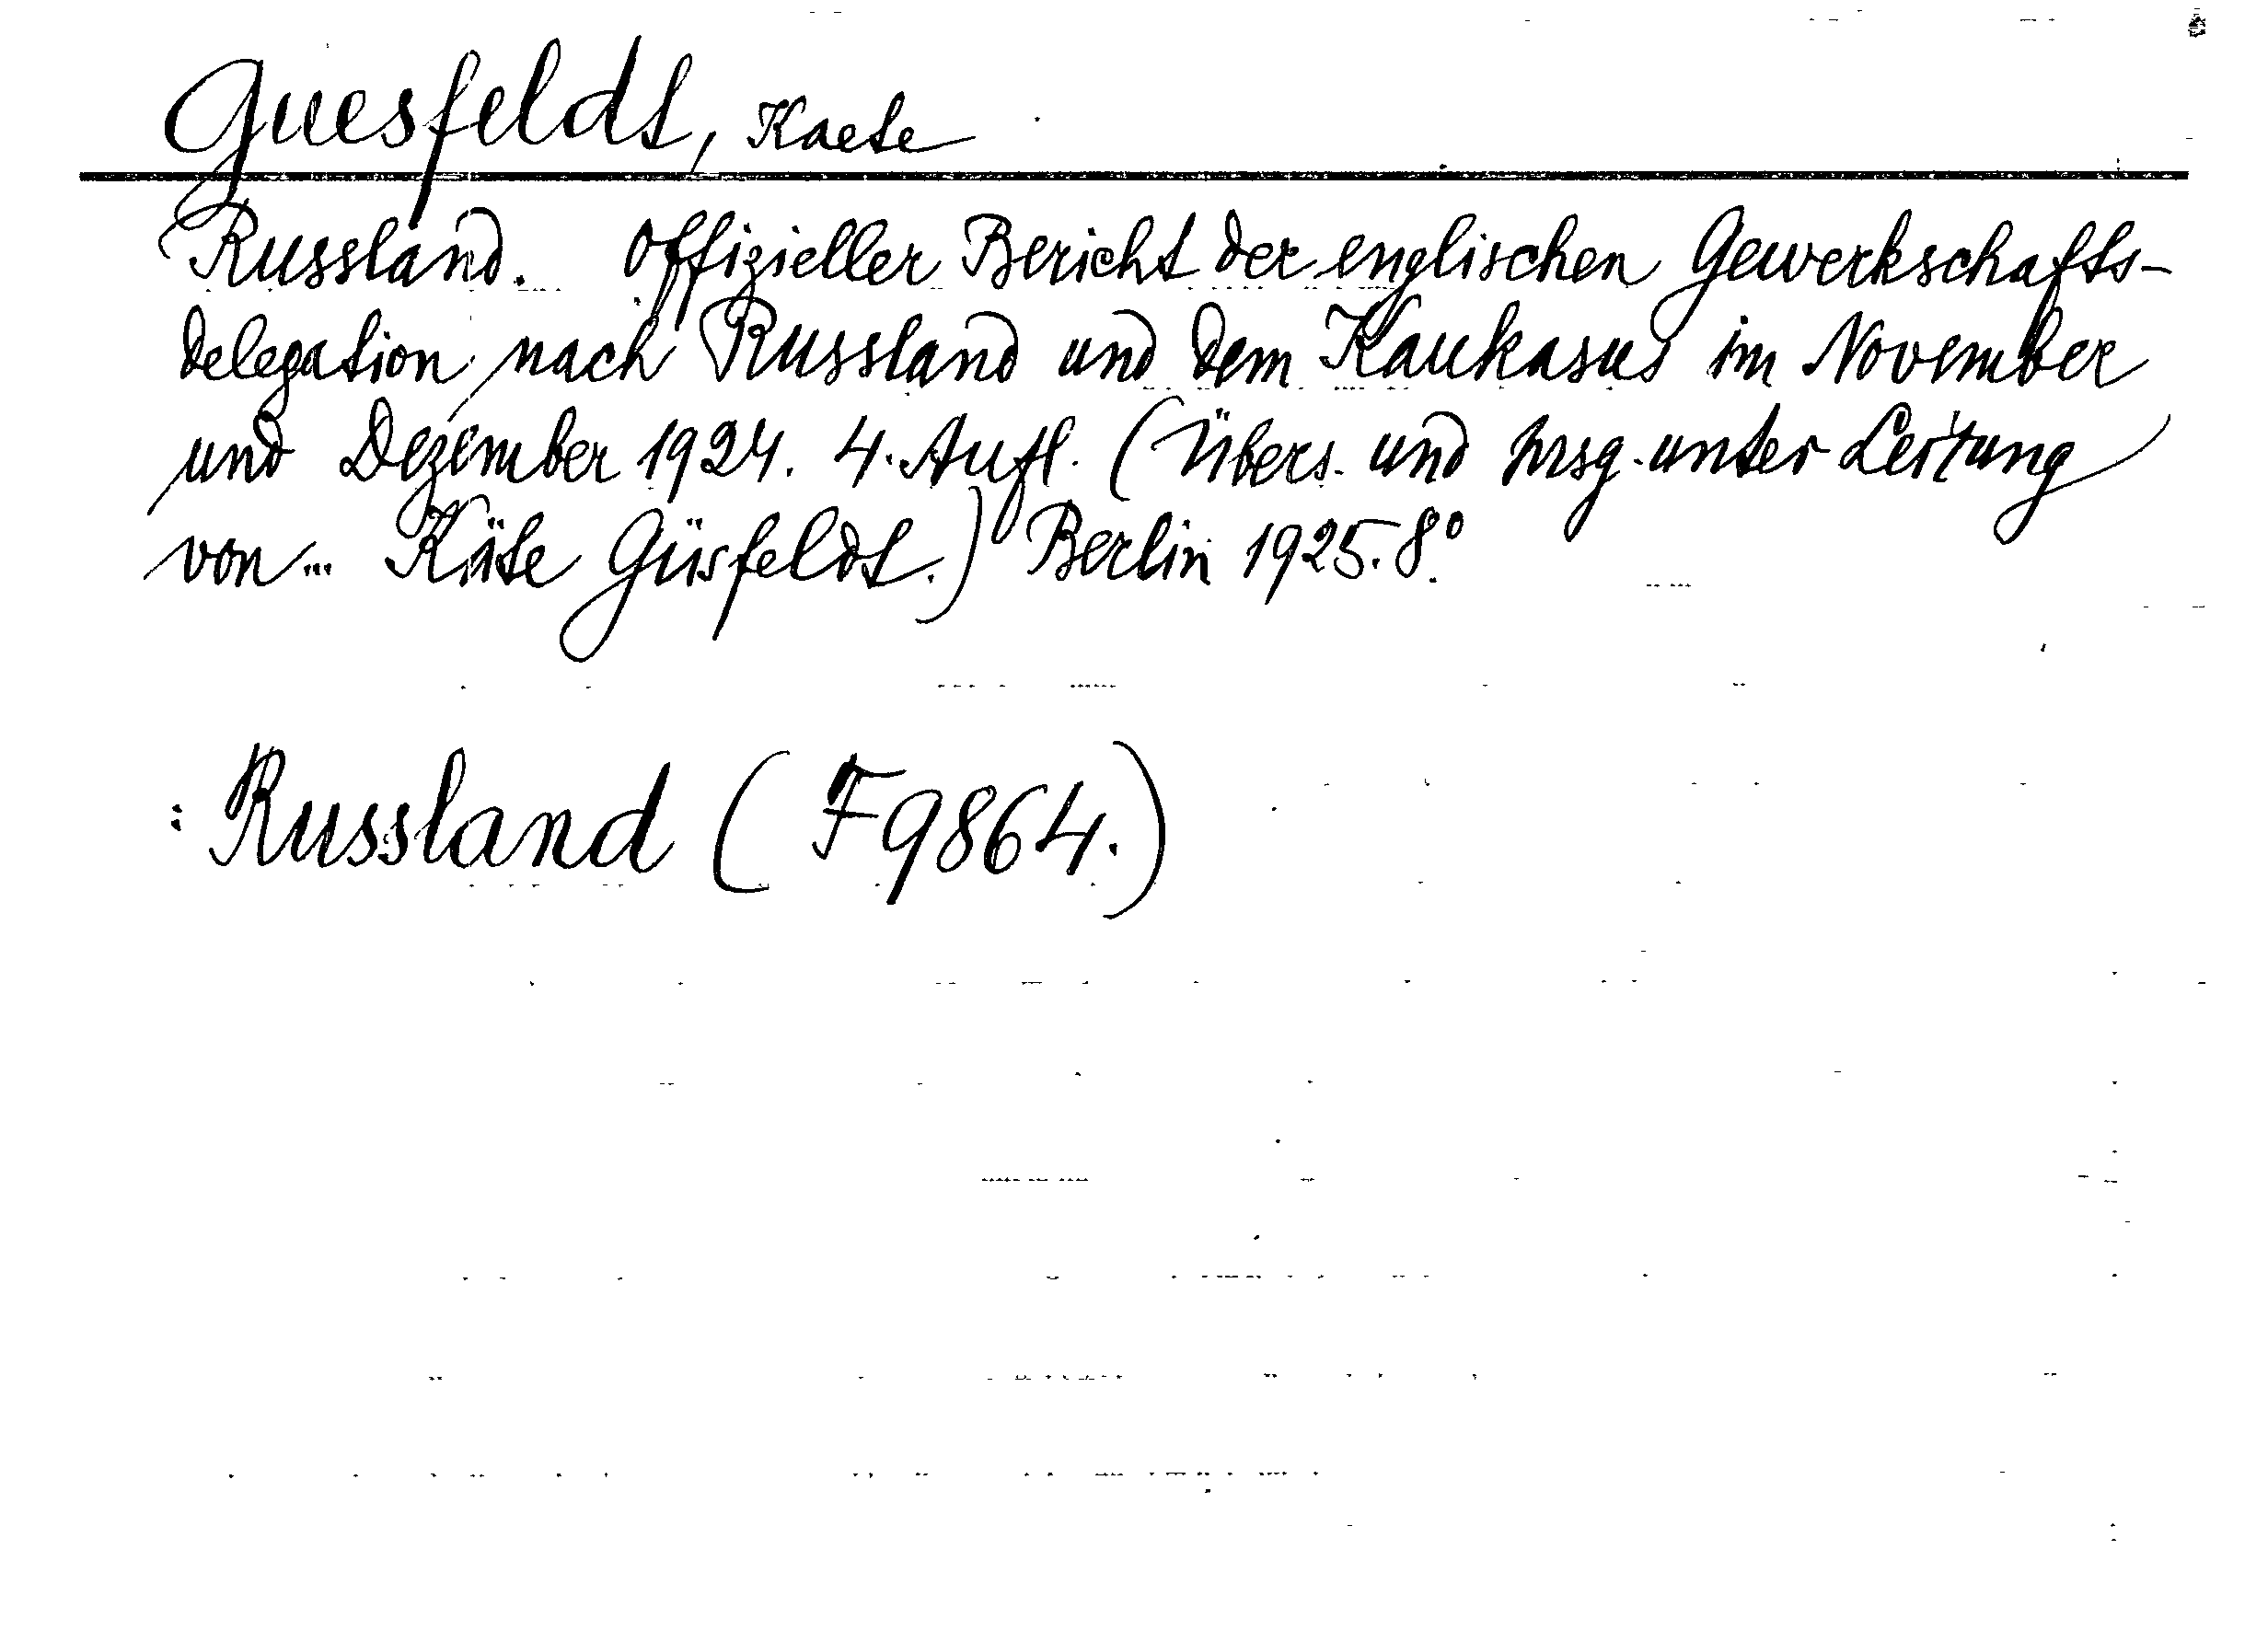 Guesfeldt, Kaete
Russland. Offizieller Bericht der englischen Gewerkschafts-
delegation nach Russland und dem Kaukasus im November
und Dezember 1924. 4. Aufl. (Übers. und hrsg. unter Leitung
von... Käte Güsfeldt.) Berlin 1925. 8°.
: Russland (F 9864.)